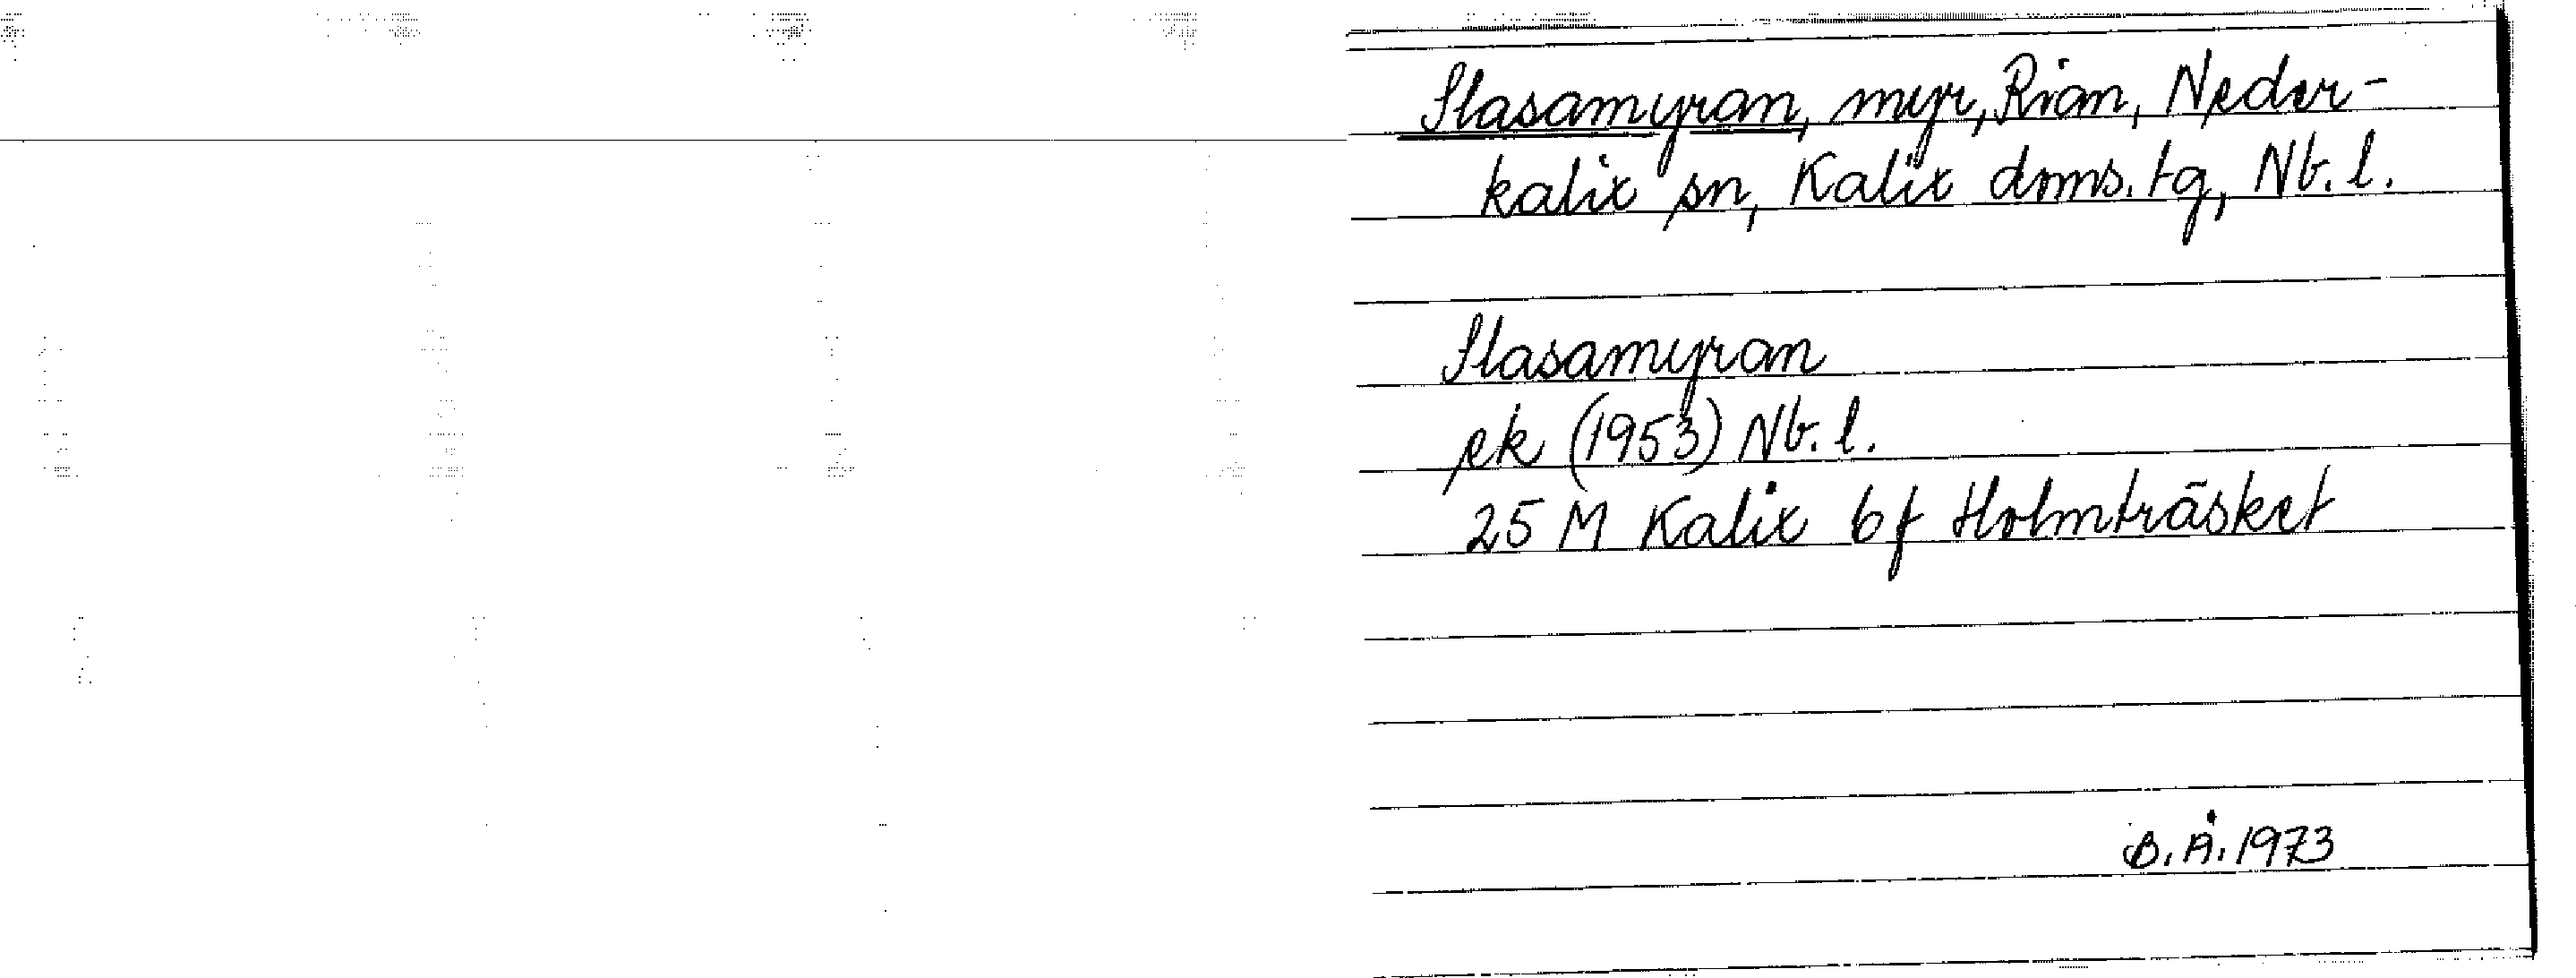 Slasamyran, myr, Rian, Neder-
kalix sn, Kalix doms. tg, Nb. l.
Slasamyran
ek (1953) Nb. l.
25 M Kalix bf Holmträsket
B. Å. 1973